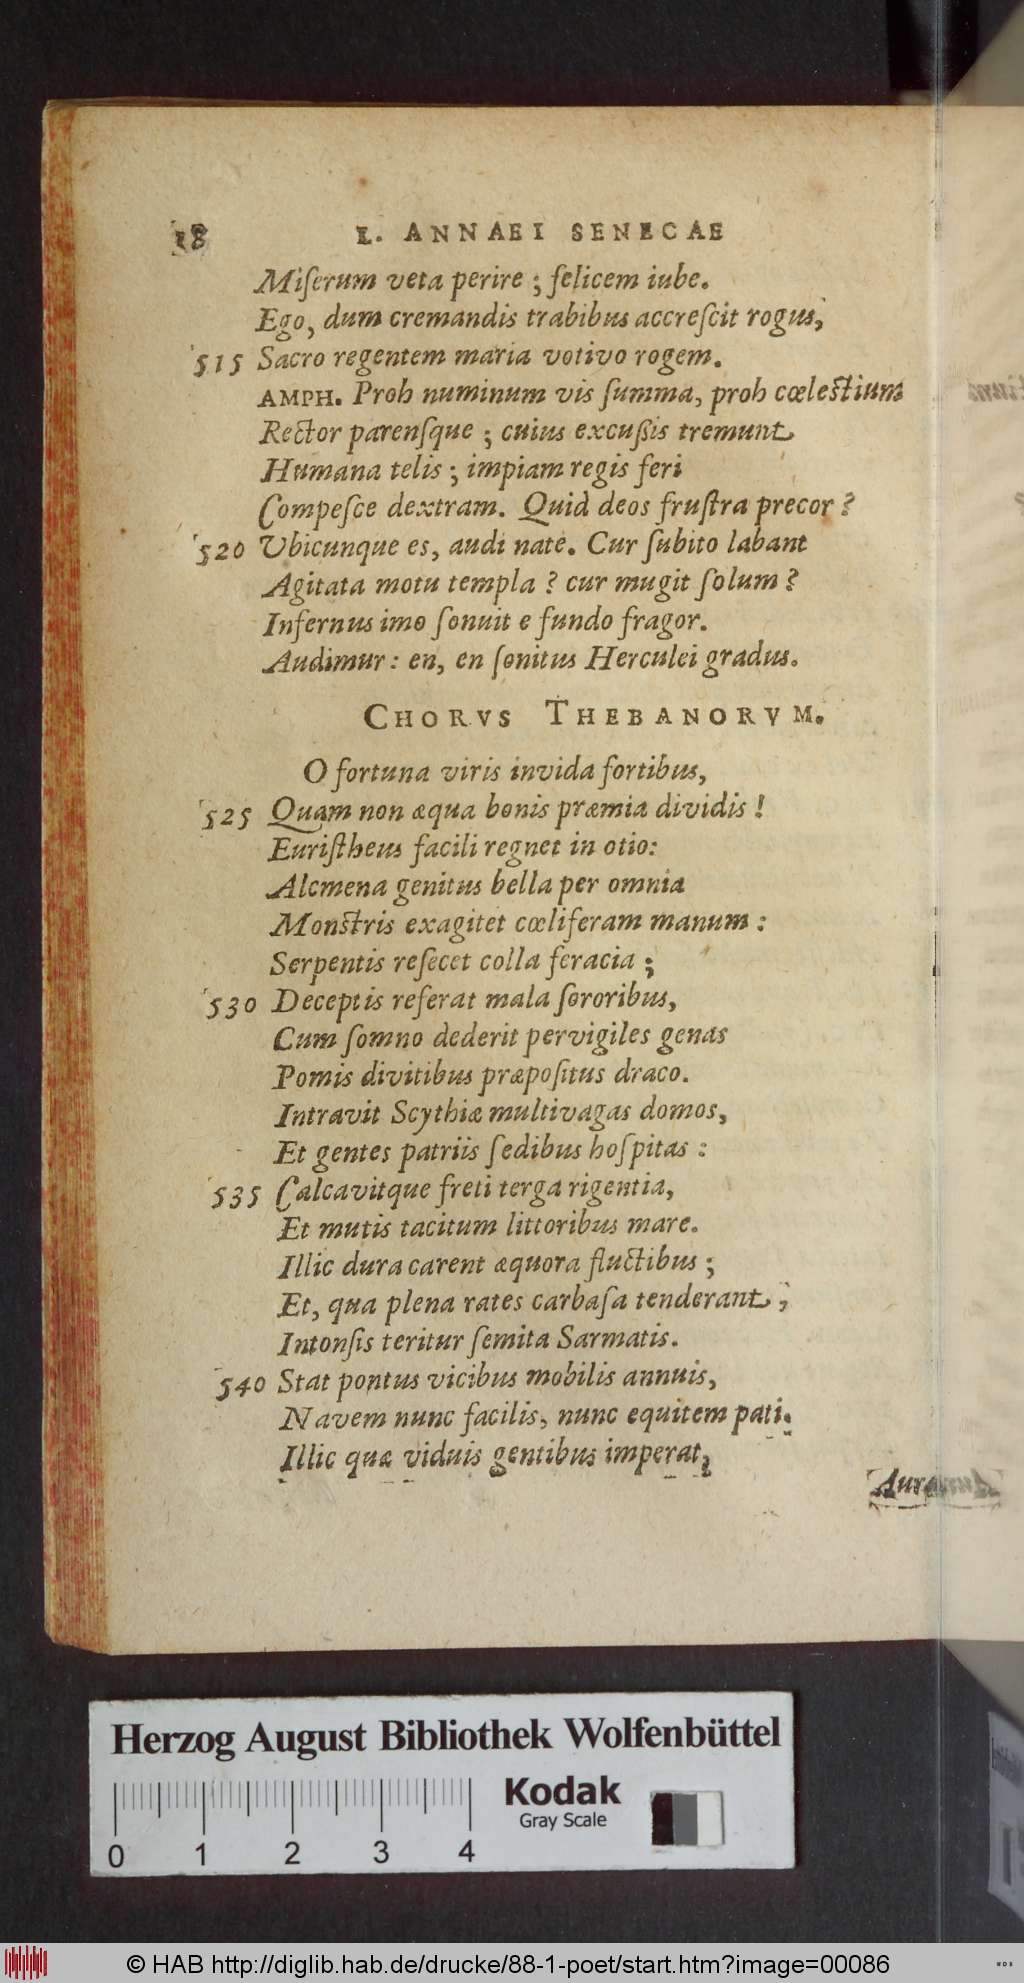 18 L. ANNAEI SENECAE
Miſerum veta perire ; felicem iube.
Ego, dum cremandis trabibus accreſcit rogus,
515 Sacro regentem maria votivo rogem.
AMPH. Proh numinum vis ſumma, proh cœleſtium
Rector parenſque ; cuius excuſsis tremunt
Humana telis ; impiam regis feri
Compeſce dextram. Quid deos fruſtra precor ?
520 Vbicunque es, audi nate. Cur ſubito labant
Agitata motu templa ? cur mugit ſolum ?
Infernus imo ſonuit e fundo fragor.
Audimur : en, en ſonitus Herculei gradus.
CHORVS THEBANORVM.
O fortuna viris invida fortibus,
525 Quam non æqua bonis præmia dividis !
Euriſtheus facili regnet in otio:
Alcmena genitus bella per omnia
Monſtris exagitet cœliferam manum :
Serpentis reſecet colla feracia ;
530 Deceptis referat mala ſororibus,
Cum ſomno dederit pervigiles genas
Pomis divitibus præpoſitus draco.
Intravit Scythiæ multivagas domos,
Et gentes patriis ſedibus hoſpitas :
535 Calcavitque freti terga rigentia,
Et mutis tacitum littoribus mare.
Illic dura carent æquora fluctibus ;
Et, qua plena rates carbaſa tenderant ,
Intonſis teritur ſemita Sarmatis.
540 Stat pontus vicibus mobilis annuis,
Navem nunc facilis, nunc equitem pati.
Illic quæ viduis gentibus imperat,
Herzog August Bibliothek Wolfenbüttel
Kodak
Gray Scale
0 1 2 3 4
© HAB http://diglib.hab.de/drucke/88-1-poet/start.htm?image=00086